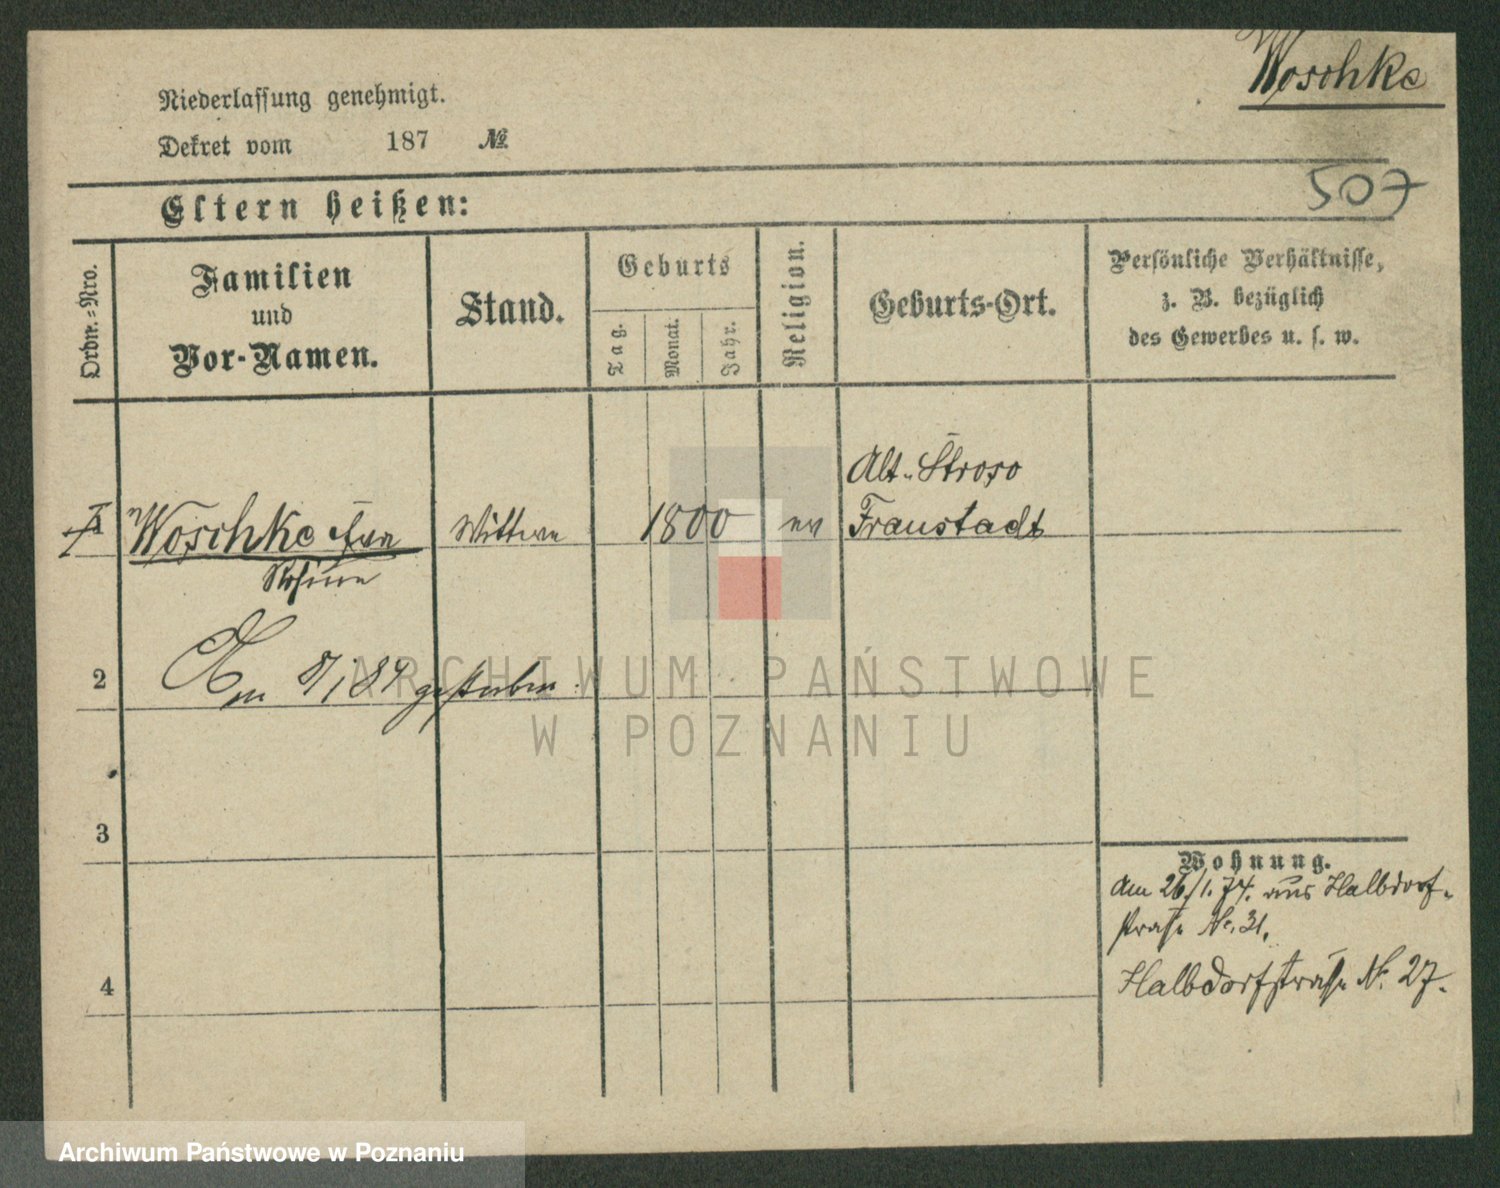 Woschke
Niederlassung genehmigt.
Dekret vom 187 №
507
Eltern heißen:
Ordn.-Nro.
Familien
und
Vor-Namen.
Stand.
Geburts
Tag.
Monat.
Jahr.
Religion.
Geburts-Ort.
Persönliche Verhältnisse,
z. B. bezüglich
des Gewerbes u. s. w.
Alt-
1 Woschke Eva Wittwe 1800 ev Fraustadt
Rosine
2 Am 8/1 84 gestorben.
ARCHIWUM PAŃSTWOWE
W POZNANIU
3
4
Wohnung.
Am 26/1. 74. aus Halbdorf-
straße No. 31.
Halbdorfstraße No. 27.
Archiwum Państwowe w Poznaniu